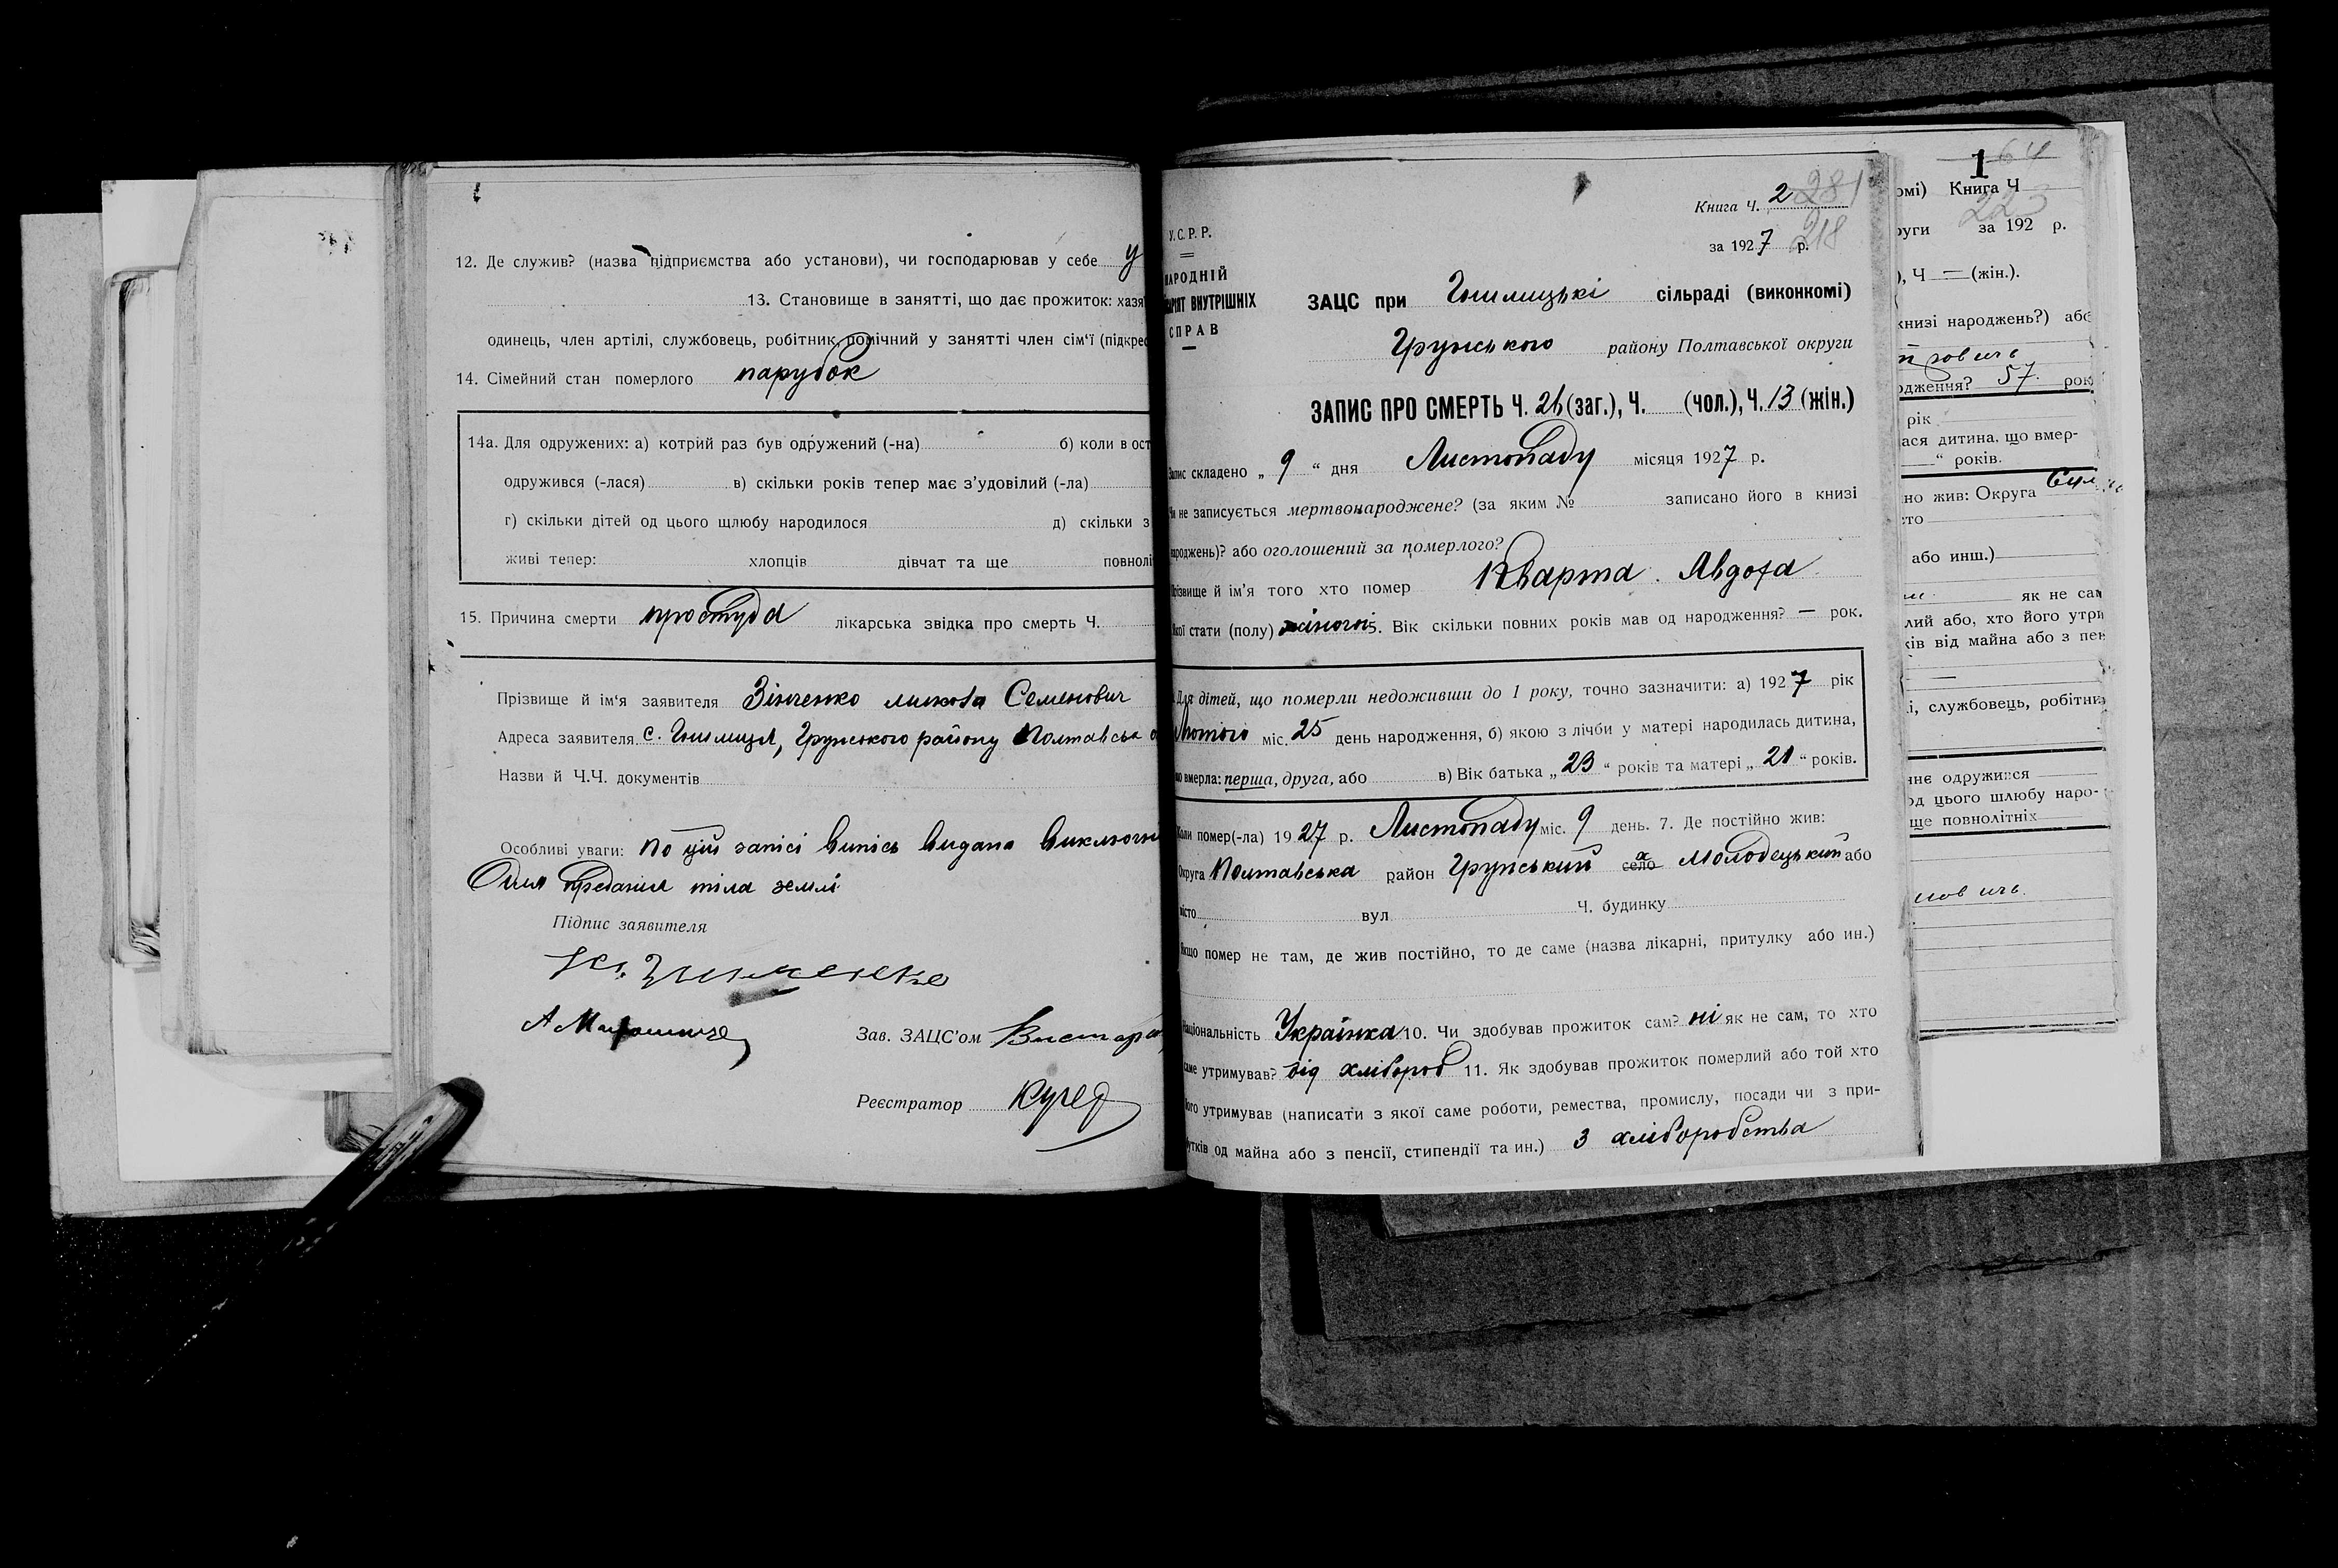 12. Де служив? (назва підприємства або установи), чи господарював у себе у
13. Становище в занятті, що дає прожиток: хазя
одинець, член артілі, службовець, робітник, помічний у занятті член сім'ї (підкрес
14. Сімейний стан померлого парубок
14а. Для одружених: а) котрий раз був одружений (-на) б) коли в ост
одружився (-лася) в) скільки років тепер має з'удовілий (-ла)
г) скільки дітей од цього щлюбу народилося д) скільки з
живі тепер: хлопців дівчат та ще повнолі
15. Причина смерти простуда лікарська звідка про смерть Ч.
Прізвище й ім'я заявителя Зінченко Микола Семенович
Адреса заявителя с. Грунського району Полтавська о
Назви й Ч.Ч. документів
Особливі уваги: по цій запісі випісь видана виключні
Для преданія тіла землі
Підпис заявителя
Зав. ЗАЦС'ом
Реєстратор Кучер
Книга Ч. 2 281
за 1927 р. 218
У.С.Р.Р.
НАРОДНІЙ
АРІЯТ ВНУТРІШНІХ
СПРАВ
ЗАЦС при сільраді (виконкомі)
Грунського району Полтавської округи
ЗАПИС ПРО СМЕРТЬ Ч. 26 (заг.), Ч. (чол.), Ч. 13 (жін.)
Запис складено „ 9 “ дня Листопаду місяця 1927 р.
Чи не записується мертвонароджене? (за яким № записано його в книзі
народжень)? або оголошений за померлого?
Прізвище й ім'я того хто помер Кварта Авдотя
Якої стати (полу) жіночої 5. Вік скільки повних років мав од народження? — рок.
Для дітей, що померли недоживши до 1 року, точно зазначити: а) 1927 рік
Лютого міс. 25 день народження, б) якою з лічби у матері народилась дитина,
що вмерла: перша, друга, або в) Вік батька „ 23 “ років та матері „ 21 “ років.
Коли помер(-ла) 1927 р. Листопаду міс. 9 день. 7. Де постійно жив:
Округа Полтавська район Грунський село х Молодецький або
місто вул Ч. будинку
Якщо помер не там, де жив постійно, то де саме (назва лікарні, притулку або ин.)
Національність Українка 10. Чи здобував прожиток сам? ні як не сам, то хто
саме утримував? від хлібороб 11. Як здобував прожиток померлий або той хто
його утримував (написати з якої саме роботи, ремества, промислу, посади чи з при-
бутків од майна або з пенсії, стипендії та ин.) з хліборобства
1 64
омі) Книга Ч
223
руги за 192 р.
), Ч — (жін.).
книзі народжень?) або
одження? 57 рок
рік
ася дитина, що вмер-
“ років.
но жив: Округа
сто
або инш.)
як не сам
лий або, хто його утри
ків від майна або з пен
і, службовець, робітни
нне одружився
од цього шлюбу наро-
ще повнолітніх